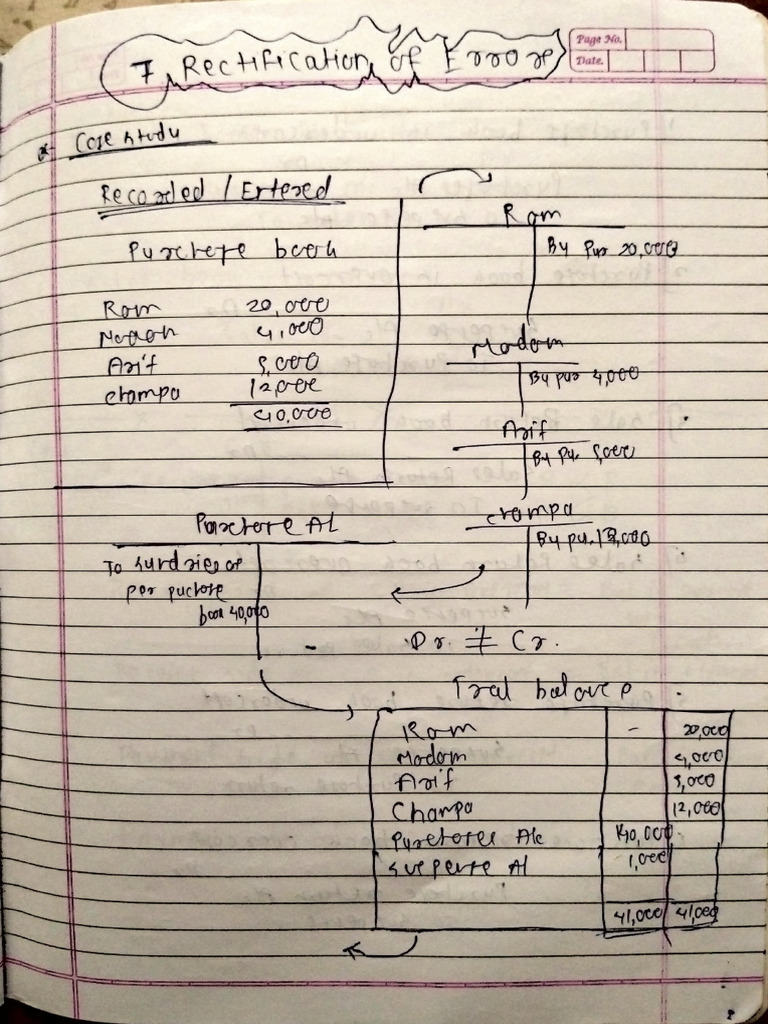 Page No.
Date.
7 Rectification of Errors
* Case study
Recorded / Entered
Purchase book
Ram 20,000
Madan 4,000
Arif 5,000
champa 12,000
40,000
Ram
By Pur 20,000
Madam
By pur 4,000
Arif
By Pur. 5,000
champa
By pu. 12,000
Purchase A/c
To sundries as
per puchase
book 40,000
Dr. ≠ Cr.
Tral balance
Ram - 20,000
Madam 4,000
Arif 5,000
Champa 12,000
Purchases A/c 40,000
Suspense A/c 1,000
41,000 41,000